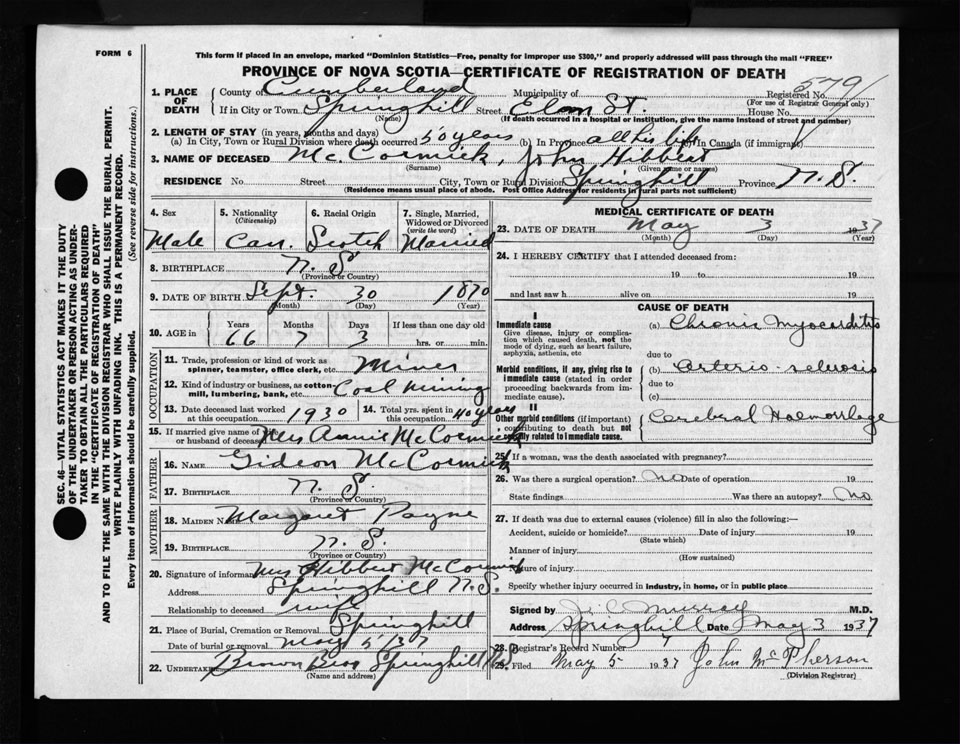 FORM 6
This form if placed in an envelope, marked "Dominion Statistics—Free, penalty for improper use $300," and properly addressed will pass through the mail "FREE"
PROVINCE OF NOVA SCOTIA—CERTIFICATE OF REGISTRATION OF DEATH
SEC. 46—VITAL STATISTICS ACT MAKES IT THE DUTY
OF THE UNDERTAKER OR PERSON ACTING AS UNDER-
TAKER TO OBTAIN ALL THE PARTICULARS REQUIRED
IN THE "CERTIFICATE OF REGISTRATION OF DEATH"
AND TO FILE THE SAME WITH THE DIVISION REGISTRAR WHO SHALL ISSUE THE BURIAL PERMIT.
WRITE PLAINLY WITH UNFADING INK. THIS IS A PERMANENT RECORD.
Every item of information should be carefully supplied. (See reverse side for instructions.)
1. PLACE OF DEATH
County of Cumberland Municipality of Registered No. 579
(For use of Registrar General only)
If in City or Town Springhill Street Elm St. House No.
(Name) (If death occurred in a hospital or institution, give the name instead of street and number)
2. LENGTH OF STAY (in years, months and days)
(a) In City, Town or Rural Division where death occurred 50 years (b) In Province all his life (c) In Canada (if immigrant)
3. NAME OF DECEASED McCormick, John Hibbert
(Surname) (Given name or names)
RESIDENCE No. Street City, Town or Rural Division Springhill Province N.S.
(Residence means usual place of abode. Post Office Address for residents in rural parts not sufficient)
4. Sex Male
5. Nationality (Citizenship) Can.
6. Racial Origin Scotch
7. Single, Married, Widowed or Divorced (write the word) Married
8. BIRTHPLACE N. S.
(Province or Country)
9. DATE OF BIRTH Sept. 30 1870
(Month) (Day) (Year)
10. AGE in Years 66 Months 7 Days 3 If less than one day old hrs. or min.
OCCUPATION
11. Trade, profession or kind of work as spinner, teamster, office clerk, etc. Miner
12. Kind of industry or business, as cotton-mill, lumbering, bank, etc. Coal Mining
13. Date deceased last worked at this occupation 1930
14. Total yrs. spent in this occupation 40 years
15. If married give name of wife or husband of deceased Mrs Annie McCormick
FATHER
16. NAME Gideon McCormick
17. BIRTHPLACE N. S.
(Province or Country)
MOTHER
18. MAIDEN NAME Margaret Payne
19. BIRTHPLACE N. S.
(Province or Country)
20. Signature of informant Mrs Hibbert McCormick
Address Springhill N.S.
Relationship to deceased wife
21. Place of Burial, Cremation or Removal Springhill
Date of burial or removal May 5/37
22. UNDERTAKER Brown Bros Springhill
(Name and address)
MEDICAL CERTIFICATE OF DEATH
23. DATE OF DEATH May 3 1937
(Month) (Day) (Year)
24. I HEREBY CERTIFY that I attended deceased from:
19 to 19
and last saw h alive on 19
CAUSE OF DEATH
I
Immediate cause
Give disease, injury or complication which caused death, not the mode of dying, such as heart failure, asphyxia, asthenia, etc
(a) Chronic Myocarditis
due to
Morbid conditions, if any, giving rise to immediate cause (stated in order proceeding backwards from immediate cause).
(b) Arterio-sclerosis
due to
(c)
II
Other morbid conditions (if important) contributing to death but not causally related to immediate cause.
Cerebral Haemorrhage
25. If a woman, was the death associated with pregnancy?
26. Was there a surgical operation? no Date of operation 19
State findings Was there an autopsy? no
27. If death was due to external causes (violence) fill in also the following:—
Accident, suicide or homicide? Date of injury 19
(State which)
Manner of injury
(How sustained)
Nature of injury
Specify whether injury occurred in industry, in home, or in public place
Signed by Murray M.D.
Address Springhill Date May 3 1937
28. Registrar's Record Number 7
29. Filed May 5 1937 John McPherson
(Division Registrar)